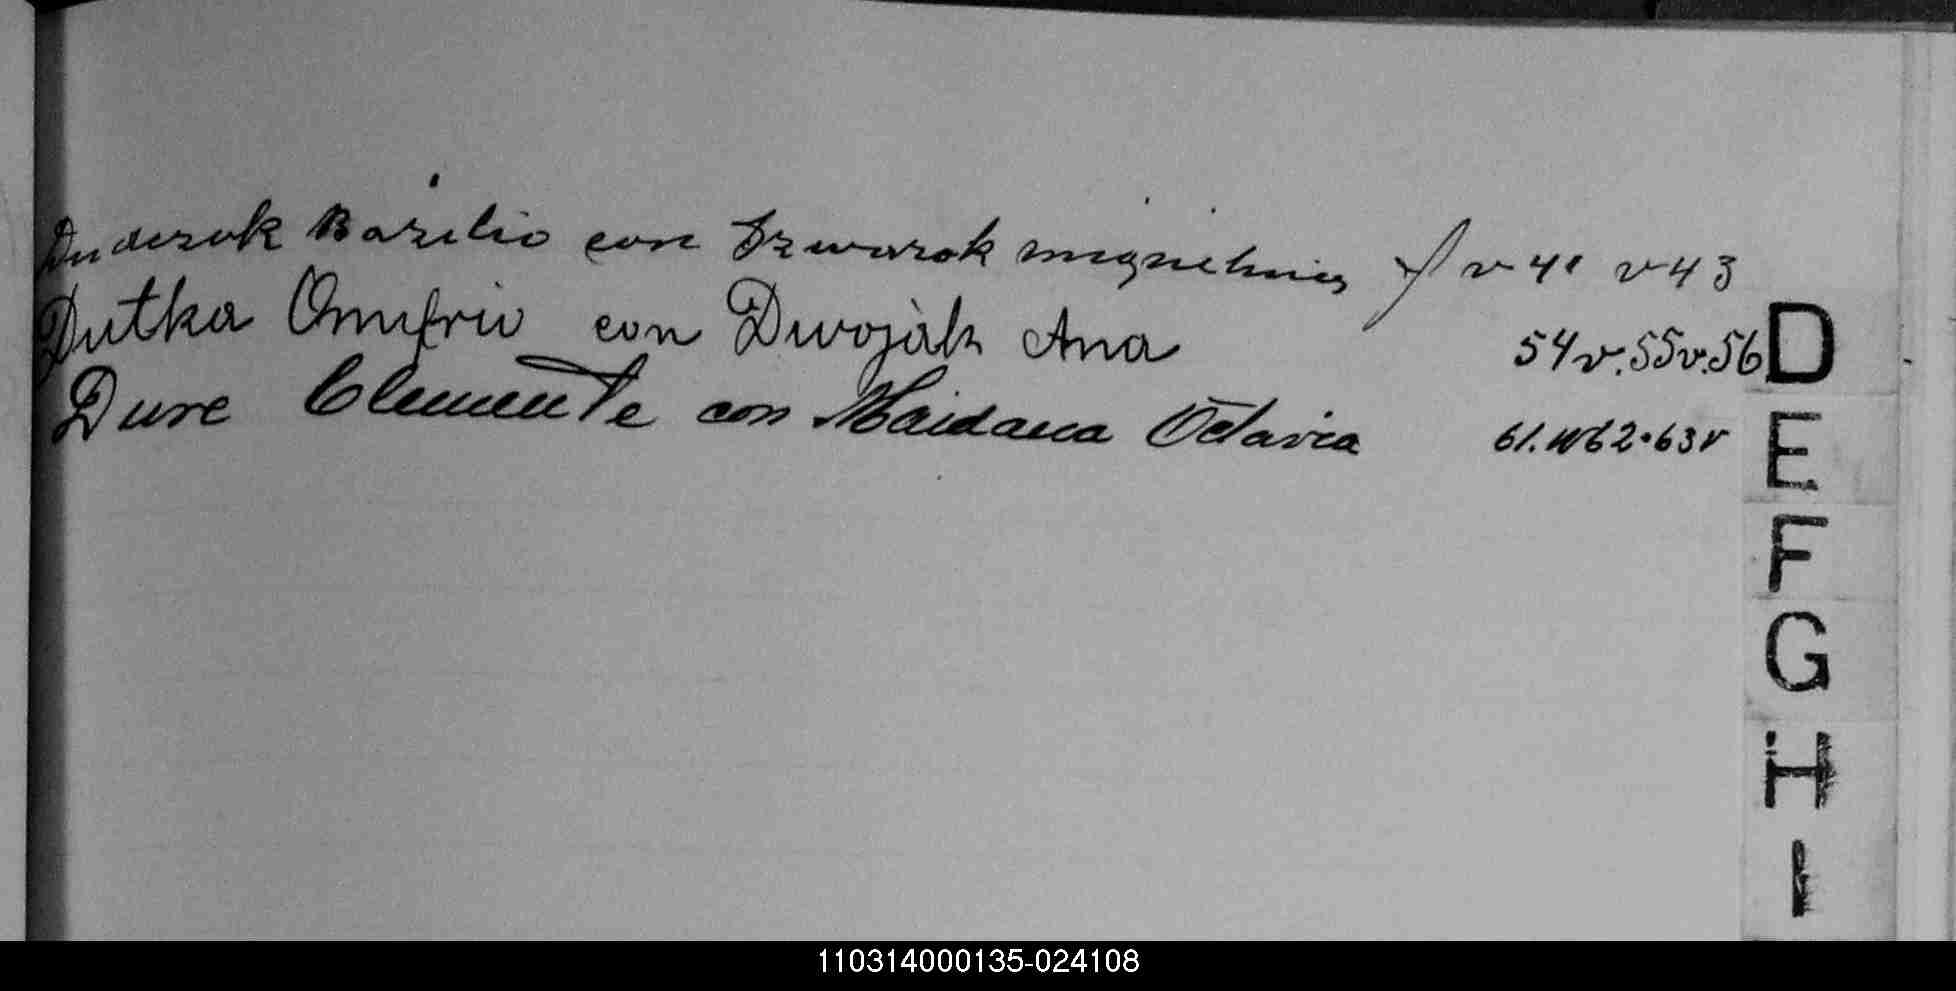 Duderuk Bazilio con Szwarok miguelina f v 41 v 43
Dutka Onufrio con Dwoják Ana 54v.55v.56
Dure Clemente con Maidana Octavia 61.v62.63v
D
E
F
G
H
I
110314000135-024108